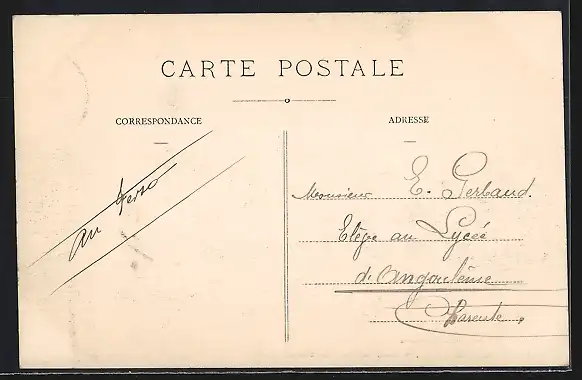 CARTE POSTALE
CORRESPONDANCE
ADRESSE
au verso
Monsieur E. Gerbaud.
Elève au Lycée
d'Angoulême
Charente.